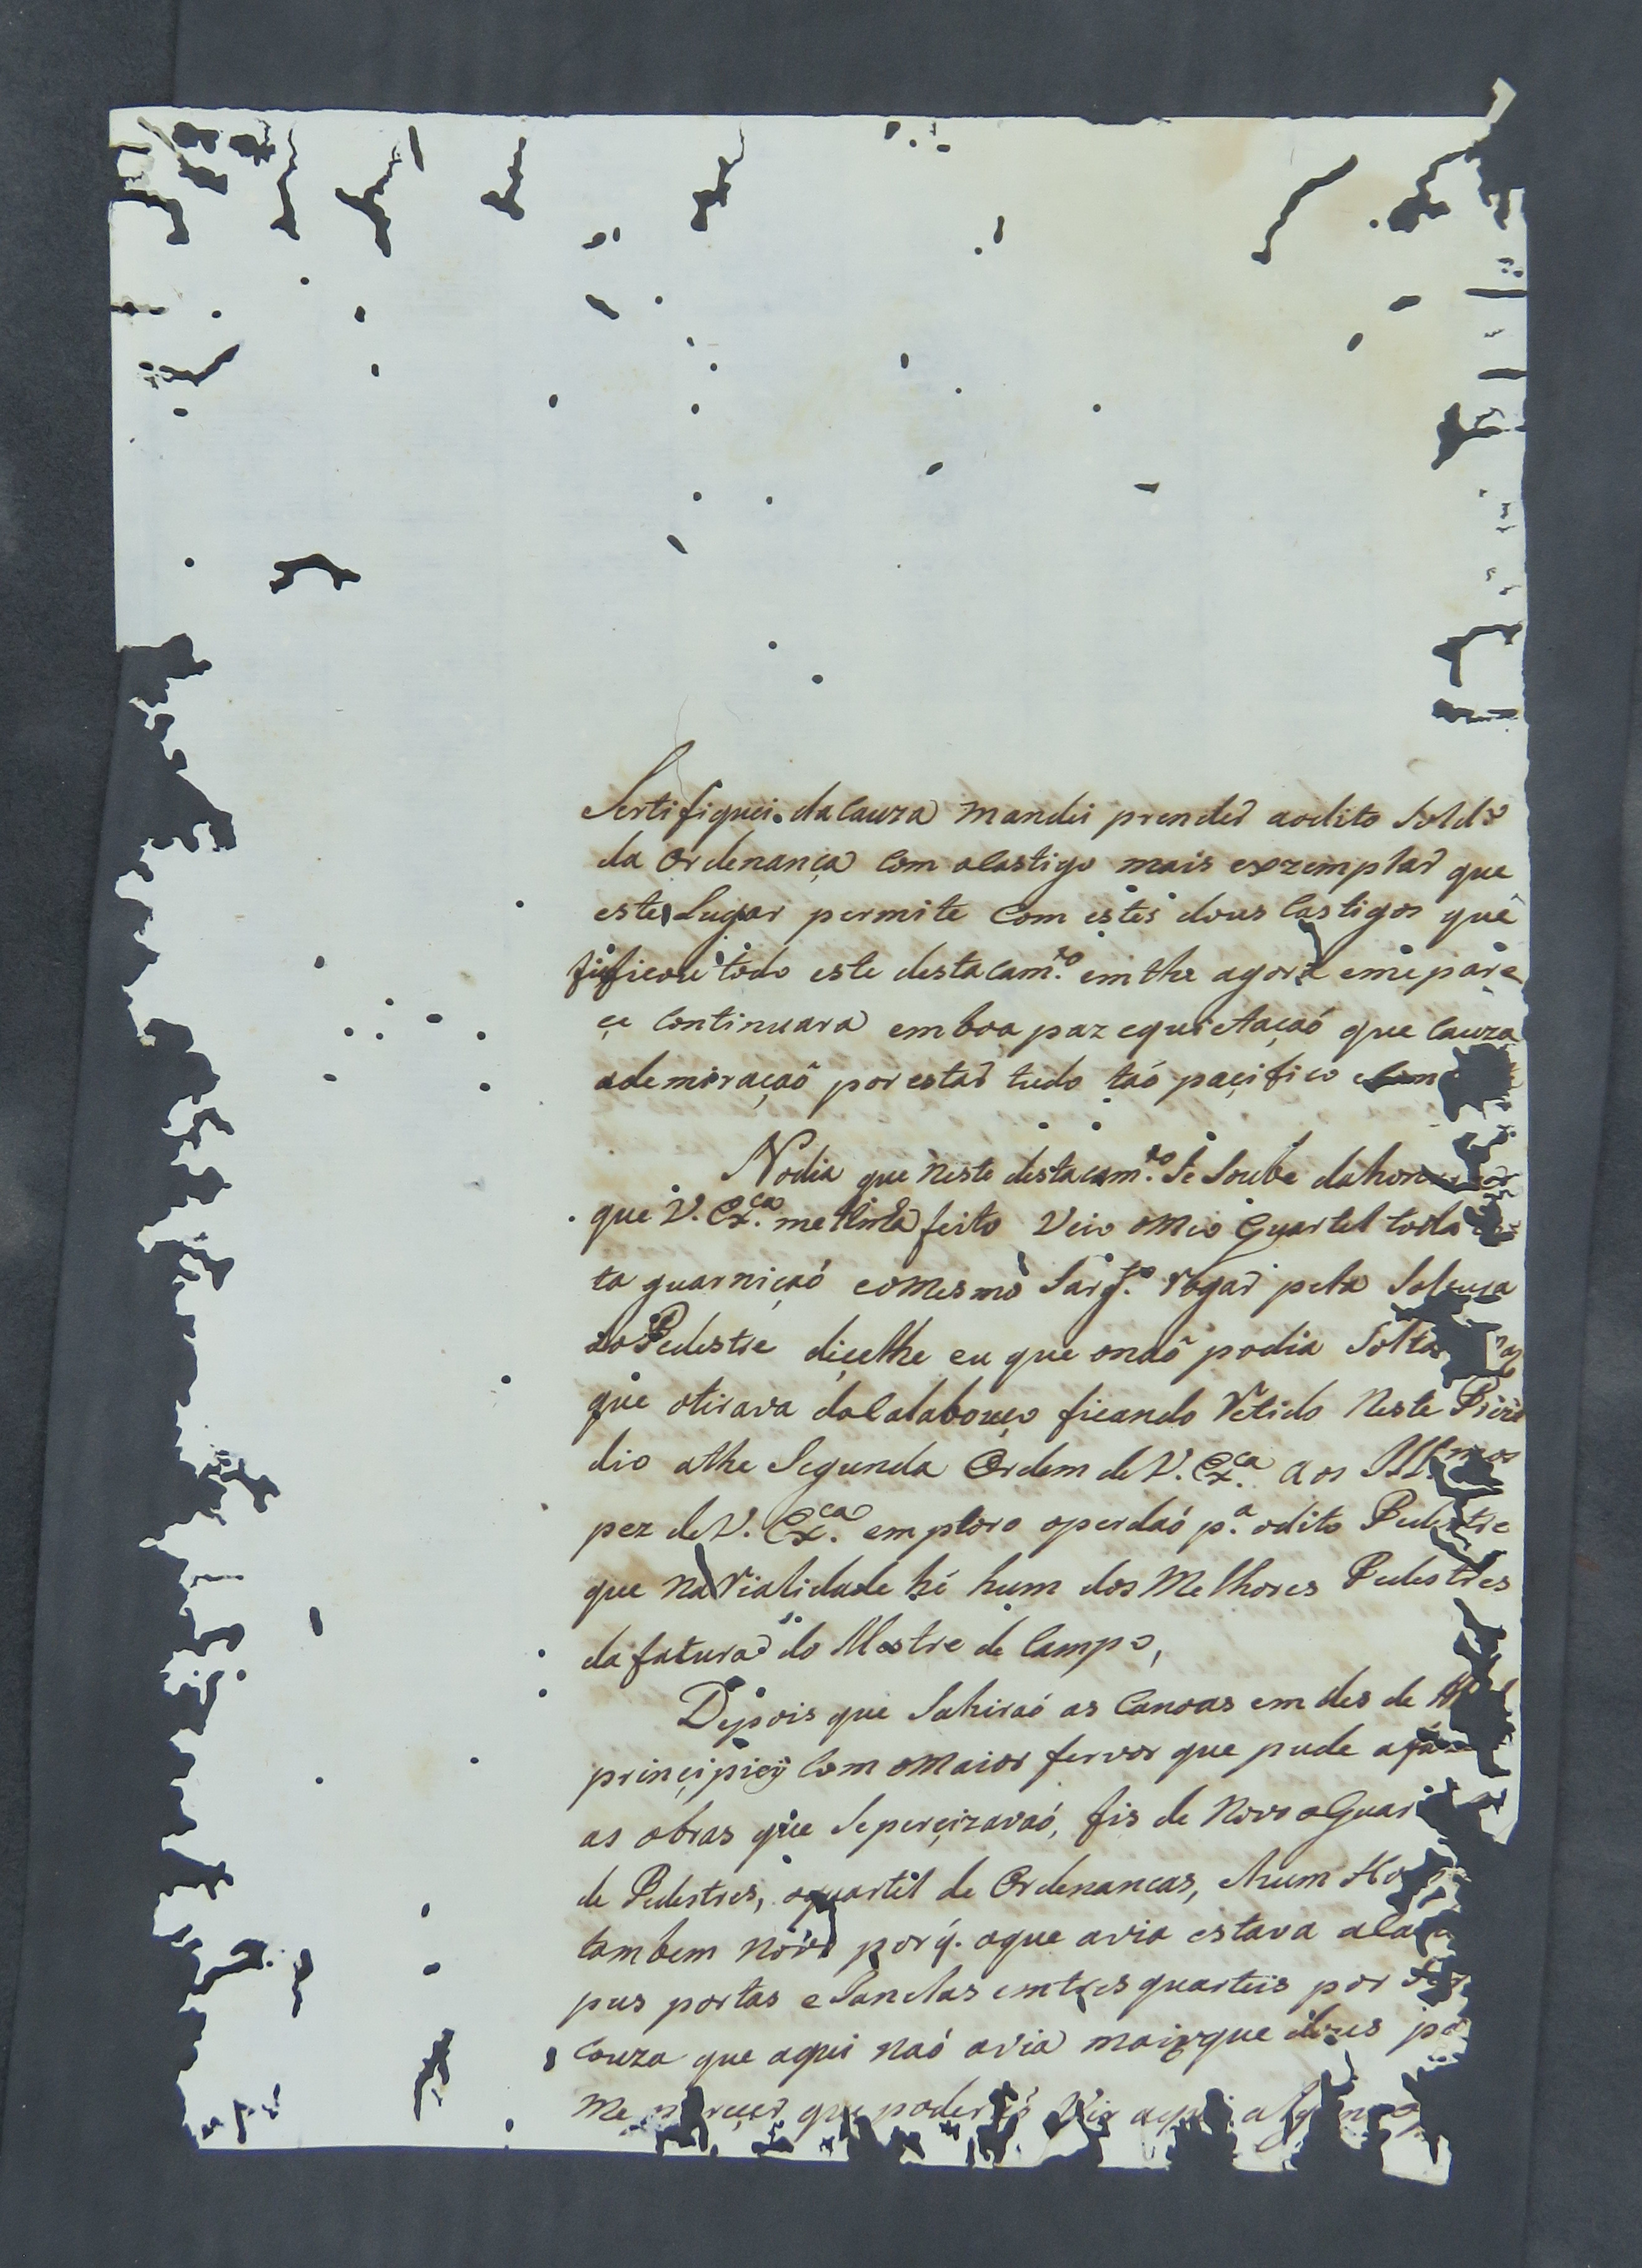 Sertifiquei da Cauza mandei prender aodito Sold.º
da Ordenança Com oCastigo mais exzemplar que
este Lugar permite Com estes dous Castigos que
ficou todo este destacam.to emthe agora emepare
çe Continuara emboa paz equietaçaó que Cauza
ademiraçaõ porestar tudo taó paçifico
Nodia que neste destacam.to Se Soube dahonra
que V. Ex.ca metinha feito Veio omeo Quartel toda
ta guarniçaó eomesmo Sarg.to rogar pela Soltura
do Pedestre diçelhe eu que onaõ podia Soltar
que otirava doCalabouço ficando Retido Neste Prezi
dio athe Segunda Ordem de V. Ex.ca aos Ill.mos
pez de V. Ex.ca emploro operdaó p.a odito Pedestre
que na rialidade hé hum dos Melhores Pedestres
da fatura do Mestre de Campo,
Depois que Sahiraó as Canoas em des de
prinçipiey Com omaior fervor que pude
as obras que Seperçizavaó, fis de Novo o
de Pedestres, oquartel de Ordenancas, ehum
tambem novo porq. oque avia estava
pus portas eJanelas emtres quarteis por
Couza que aqui naó avia maisque
Me pareçer que poderaó Vir aqui